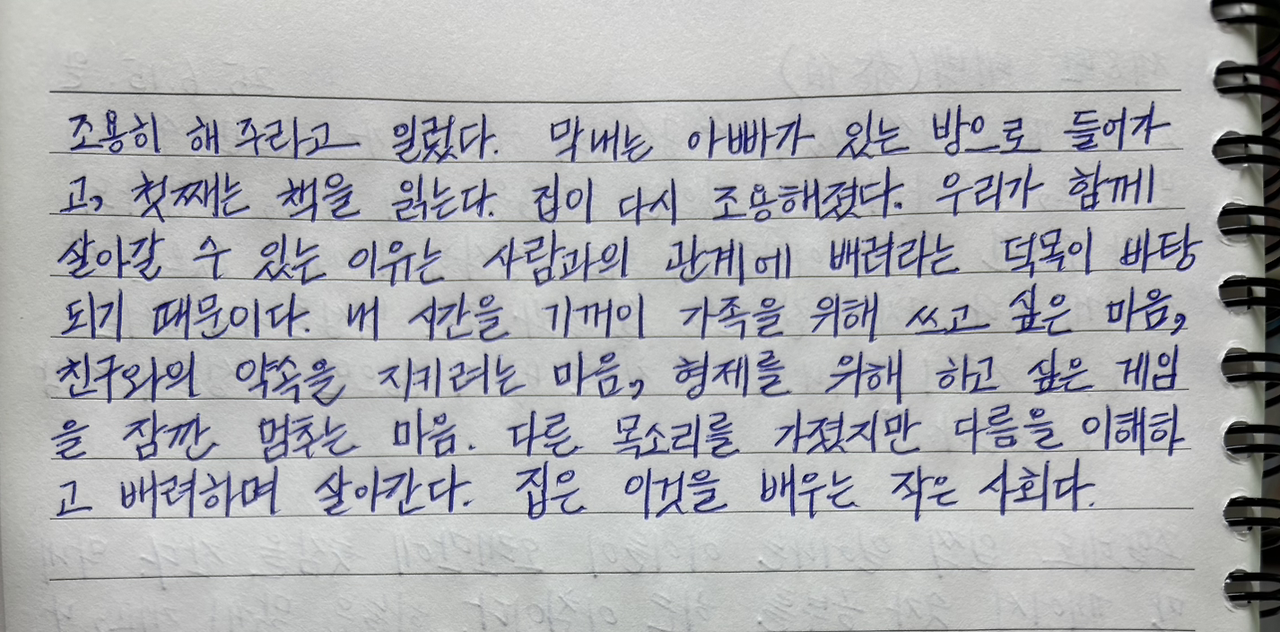 조용히 해 주라고 일렀다. 막내는 아빠가 있는 방으로 들어가
고, 첫째는 책을 읽는다. 집이 다시 조용해졌다. 우리가 함께
살아갈 수 있는 이유는 사람과의 관계에 배려라는 덕목이 바탕
되기 때문이다. 내 시간을 기꺼이 가족을 위해 쓰고 싶은 마음,
친구와의 약속을 지키려는 마음, 형제를 위해 하고 싶은 게임
을 잠깐 멈추는 마음. 다른 목소리를 가졌지만 다름을 이해하
고 배려하며 살아간다. 집은 이것을 배우는 작은 사회다.